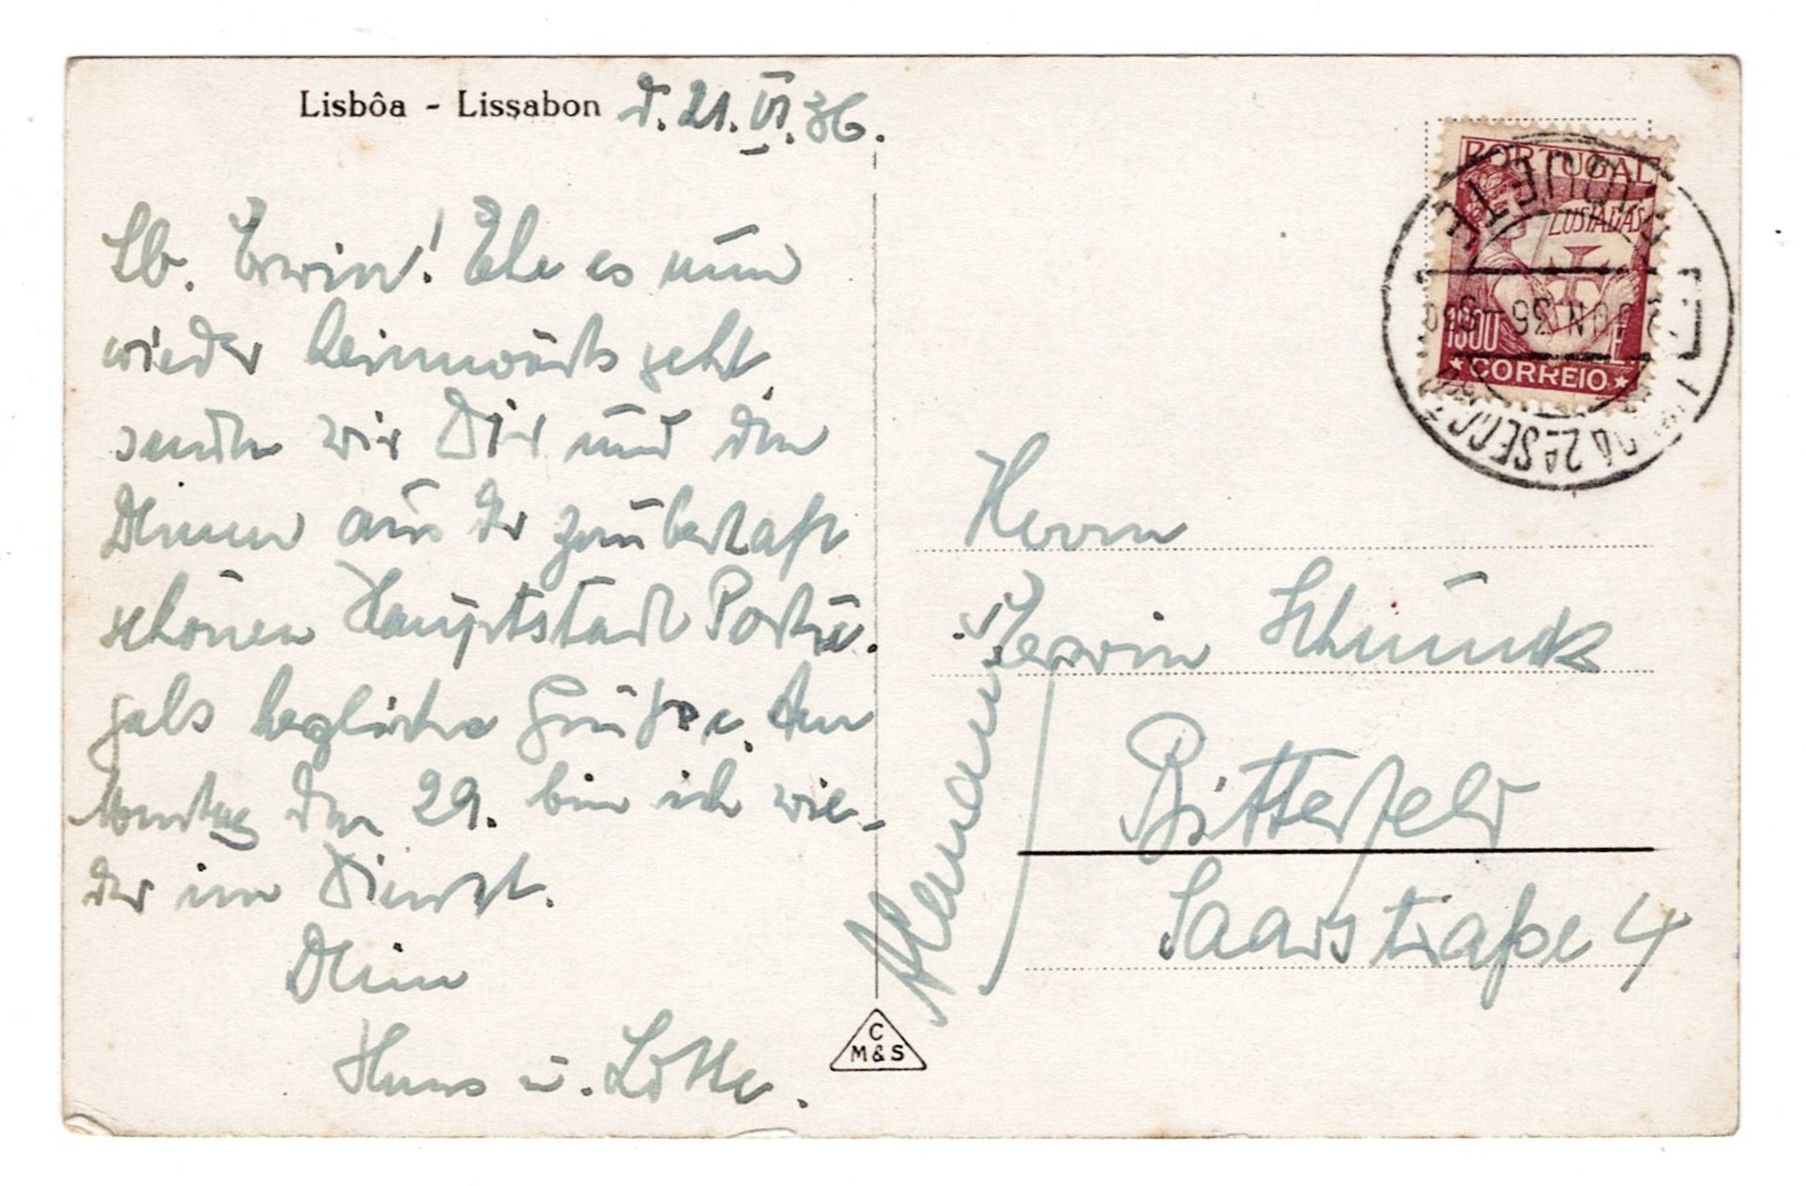 Lisbôa - Lissabon d. 21. VI. 36.
Lb. Erwin! Ehe es nun
wieder heimwärts geht,
senden wir Dir und den
Deinen aus der zauberhaft
schönen Hauptstadt Portu-
gals herzliche Grüße. Am
Montag den 29. bin ich wie-
der im Dienst.
Dein
Hans u. Lotte.
PORTUGAL
LUSIADAS
1$00
CORREIO
2ª SECÇ
Herrn
Erwin Schunck
Bitterfeld
Saarstraße 4
Alemania
C
M&S